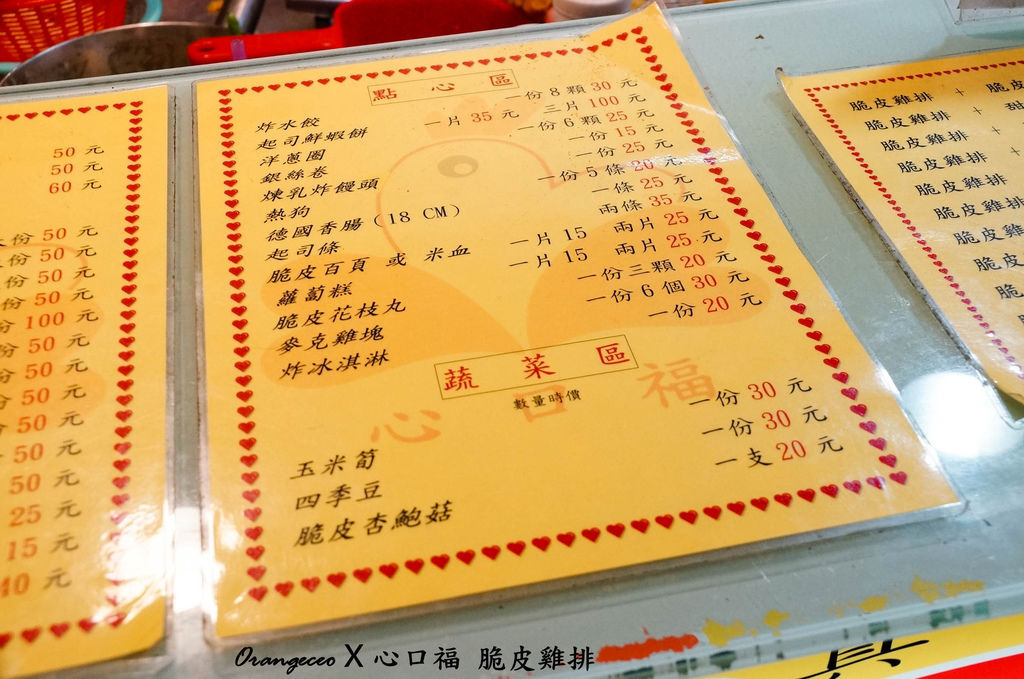 50 元
50 元
60 元
份 50 元
份 50 元
份 50 元
份 50 元
份 100 元
份 50 元
份 50 元
份 50 元
50 元
50 元
50 元
25 元
15 元
40 元
點 心 區
炸水餃 一份 8 顆 30 元
起司鮮蝦餅 一片 35 元 三片 100 元
洋蔥圈 一份 6 顆 25 元
銀絲卷 一份 15 元
煉乳炸饅頭 一份 25 元
熱狗 一份 5 條 20 元
德國香腸 (18 CM) 一條 25 元
起司條 兩條 35 元
脆皮百頁 或 米血 一片 15 兩片 25 元
蘿蔔糕 一片 15 兩片 25 元
脆皮花枝丸 一份三顆 20 元
麥克雞塊 一份 6 個 30 元
炸冰淇淋 一份 20 元
蔬 菜 區
數量時價
心口福
玉米筍 一份 30 元
四季豆 一份 30 元
脆皮杏鮑菇 一支 20 元
脆皮雞排 + 脆皮
脆皮雞排 + 甜
脆皮雞排 +
脆皮雞排 +
脆皮雞排
脆皮雞排
脆皮雞排
脆皮
脆
Orangeceo X 心口福 脆皮雞排